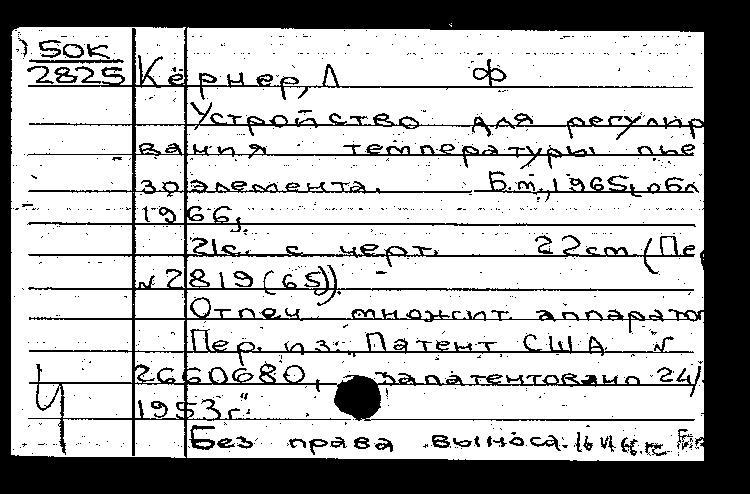 50К
2825 Кёрнер, Л Ф
Устройство для регулир
вания температуры пье
зоэлемента. Б.m., 1965, обл
1966.
21с. с черт. 22cm (Пер
№2819(65))
Отпеч множит. аппарато
Пер. из: Патент США №
2660680, запатентовано 24/
1953г."
Ч
Без права выноса.